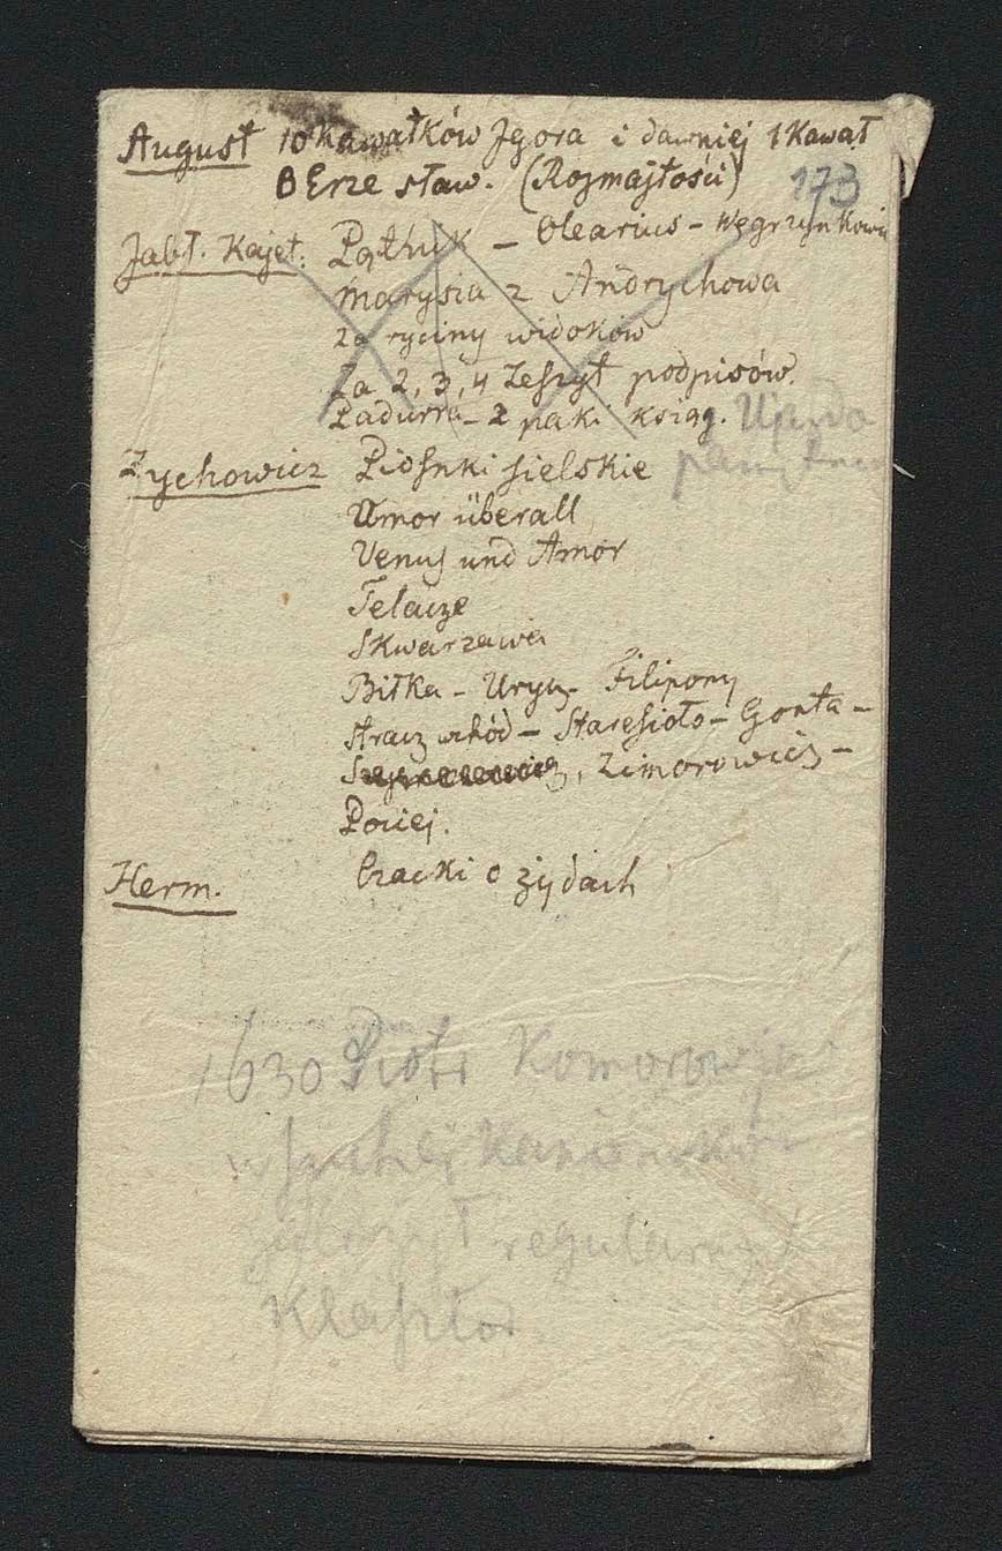 August 10 Kawałków Jgora i dawniej 1 Kawał
BErze sław. (Rozmajtości) 173
Jabł. Kajet. Pąthik – Olearius – Węgrzyn
Marysia z Andrychowa
za ryciny widoków
Za 2, 3, 4 Zeszyt podpisów.
Padurra – 2 paki ksiąg.
Zychowicz Piosnki sielskie
Amor überall
Venus und Amor
Telacze
Skwarzawa
Biłka – Urycz – Filipony
Stracz wchód – Staresioło – Gonta –
Zimorowicz –
Pociej.
Herm. Czacki o żydach
1630 Piotr Komorowski
w suchej
założył regularny
Klasztor